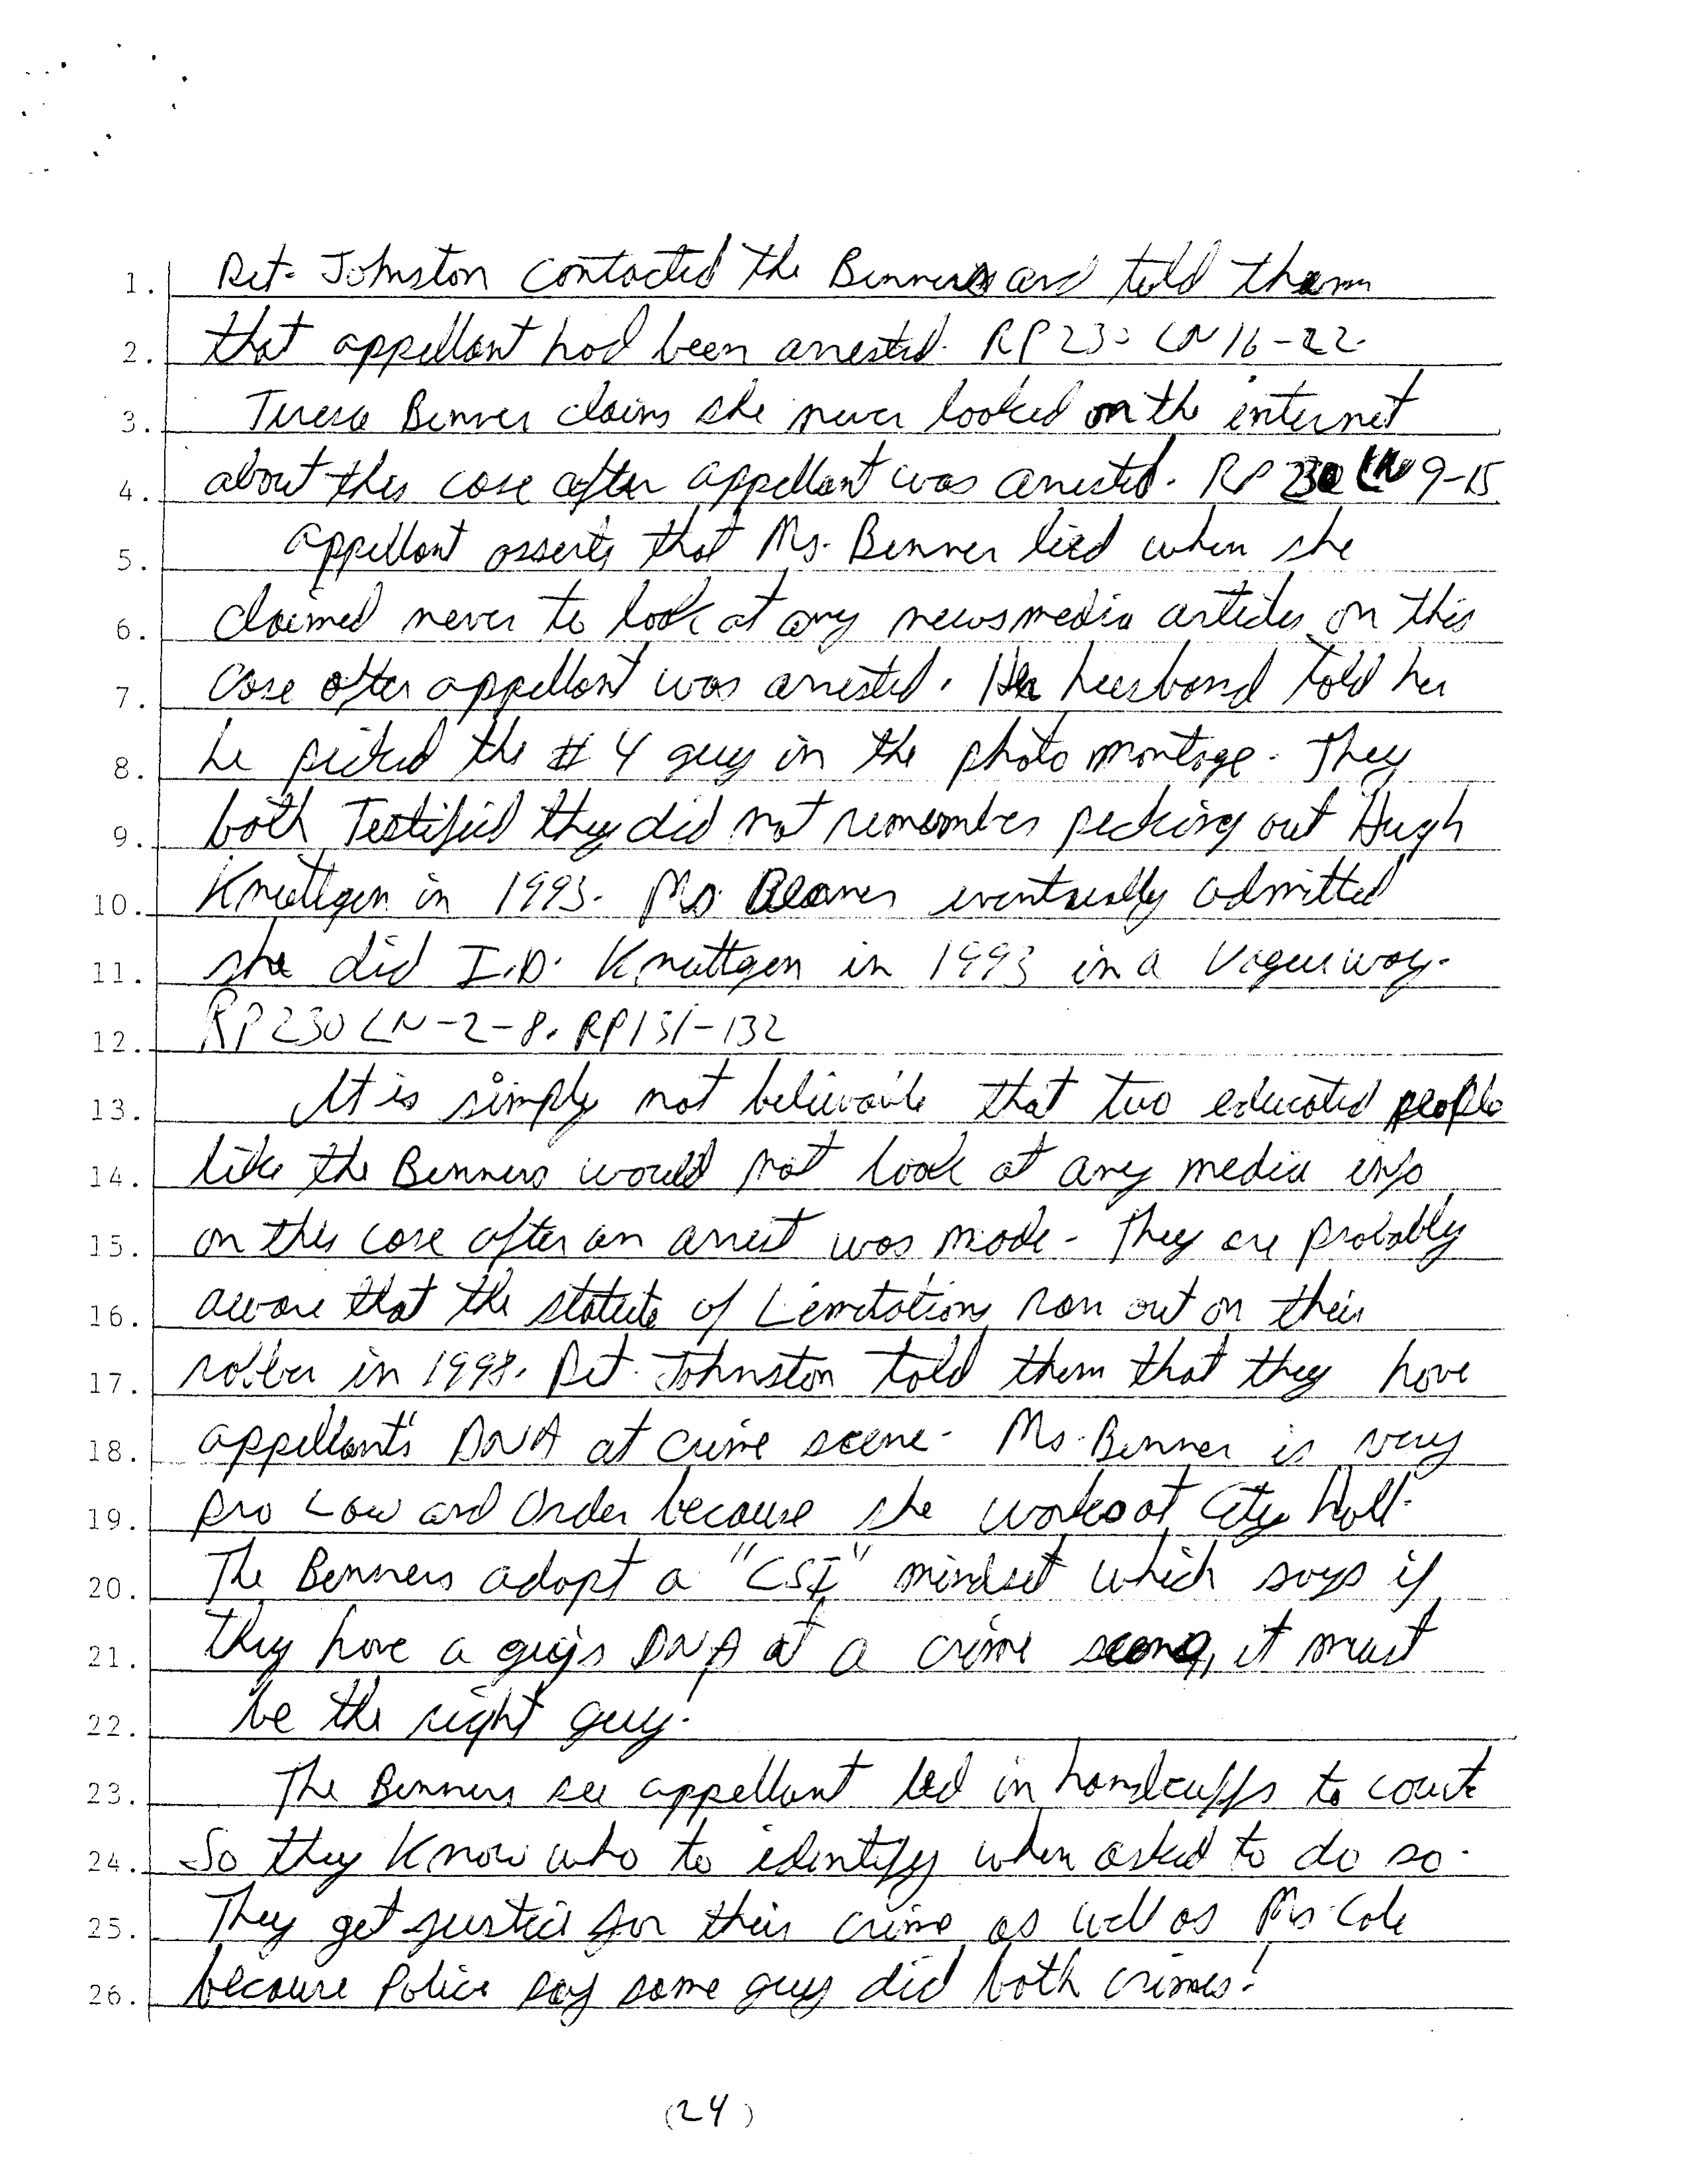 1. Det. Johnston contacted the Benners and told them
2. that appellant had been arrested. RP 230 LN 16-22.
3. Teresa Benner claims she never looked on the internet
4. about this case after appellant was arrested. RP 230 LN 9-15
5. appellant asserts that Ms. Benner lied when she
6. claimed never to look at any newsmedia articles on this
7. case after appellant was arrested. Her husband told her
8. he picked the #4 guy in the photo montage. They
9. both Testified they did not remember picking out Hugh
10. Knuttgen in 1993. Ms. Benner eventually admitted
11. she did I.D. Knuttgen in 1993 in a Vague way.
12. RP 230 LN-2-8. RP 131-132
13. It is simply not believable that two educated people
14. like the Benners would not look at any media info
15. on this case after an arrest was made. They are probably
16. aware that the statute of Limitations ran out on their
17. robber in 1998. Det. Johnston told them that they have
18. appellant's DNA at crime scene. Ms. Benner is very
19. pro Law and Order because she works at City Hall.
20. The Benners adopt a "CSI" mindset which says if
21. they have a guys DNA at a crime scene, it must
22. be the right guy.
23. The Benners see appellant led in handcuffs to court
24. So they know who to identify when asked to do so.
25. They get justice for their crime as well as Ms. Cole
26. because Police say same guy did both crimes!
(24)